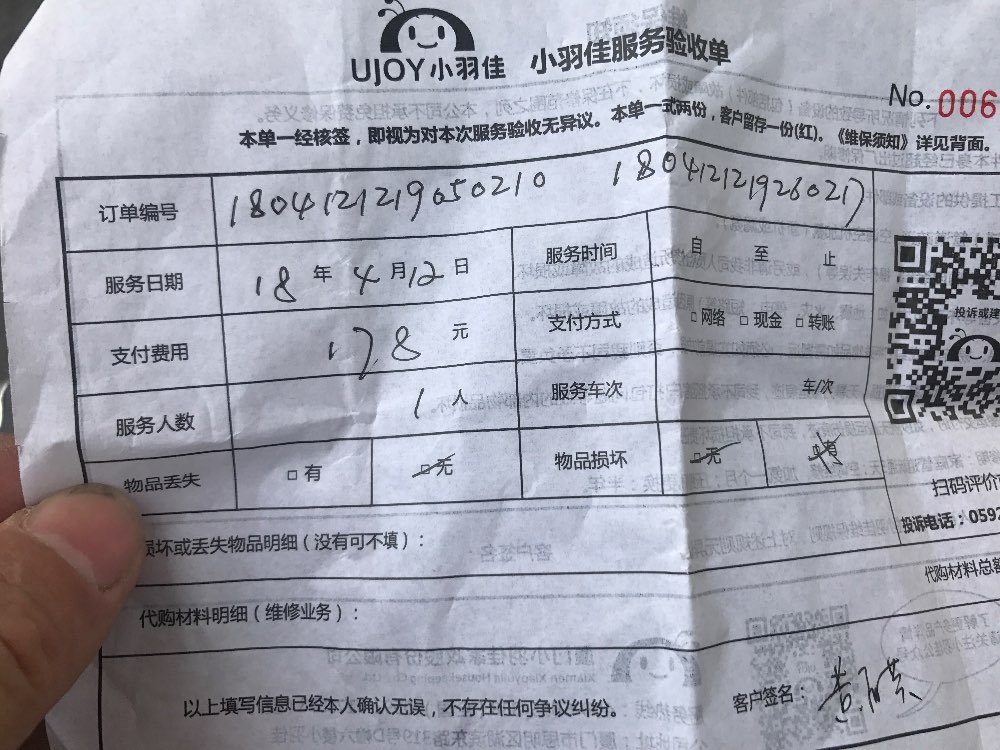 UJOY小羽佳 小羽佳服务验收单
No. 006
本单一经核签，即视为对本次服务验收无异议。本单一式两份，客户留存一份(红)。《维保须知》详见背面。
订单编号 1804121219050210 1804121219260217
服务日期 18 年 4 月 12 日 服务时间 自 至 止
支付费用 178 元 支付方式 □网络 □现金 □转账
投诉或建
服务人数 1 人 服务车次 车/次
物品丢失 □有 □无 物品损坏 □无 □有
扫码评价
投诉电话：0592
损坏或丢失物品明细（没有可不填）：
代购材料总额
代购材料明细（维修业务）：
以上填写信息已经本人确认无误，不存在任何争议纠纷。 客户签名：